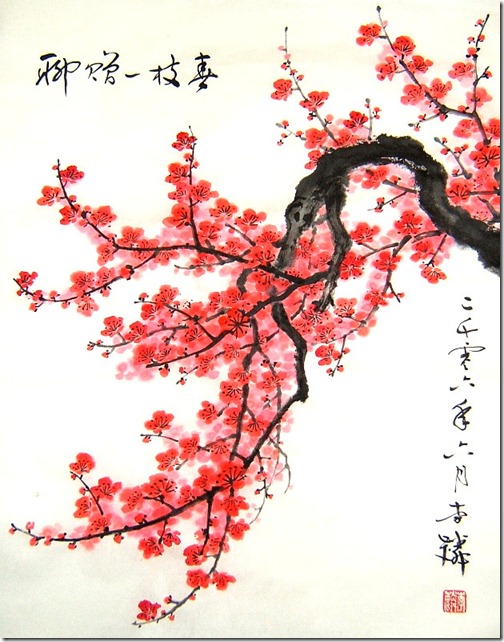 聊赠一枝春
二千零六年六月